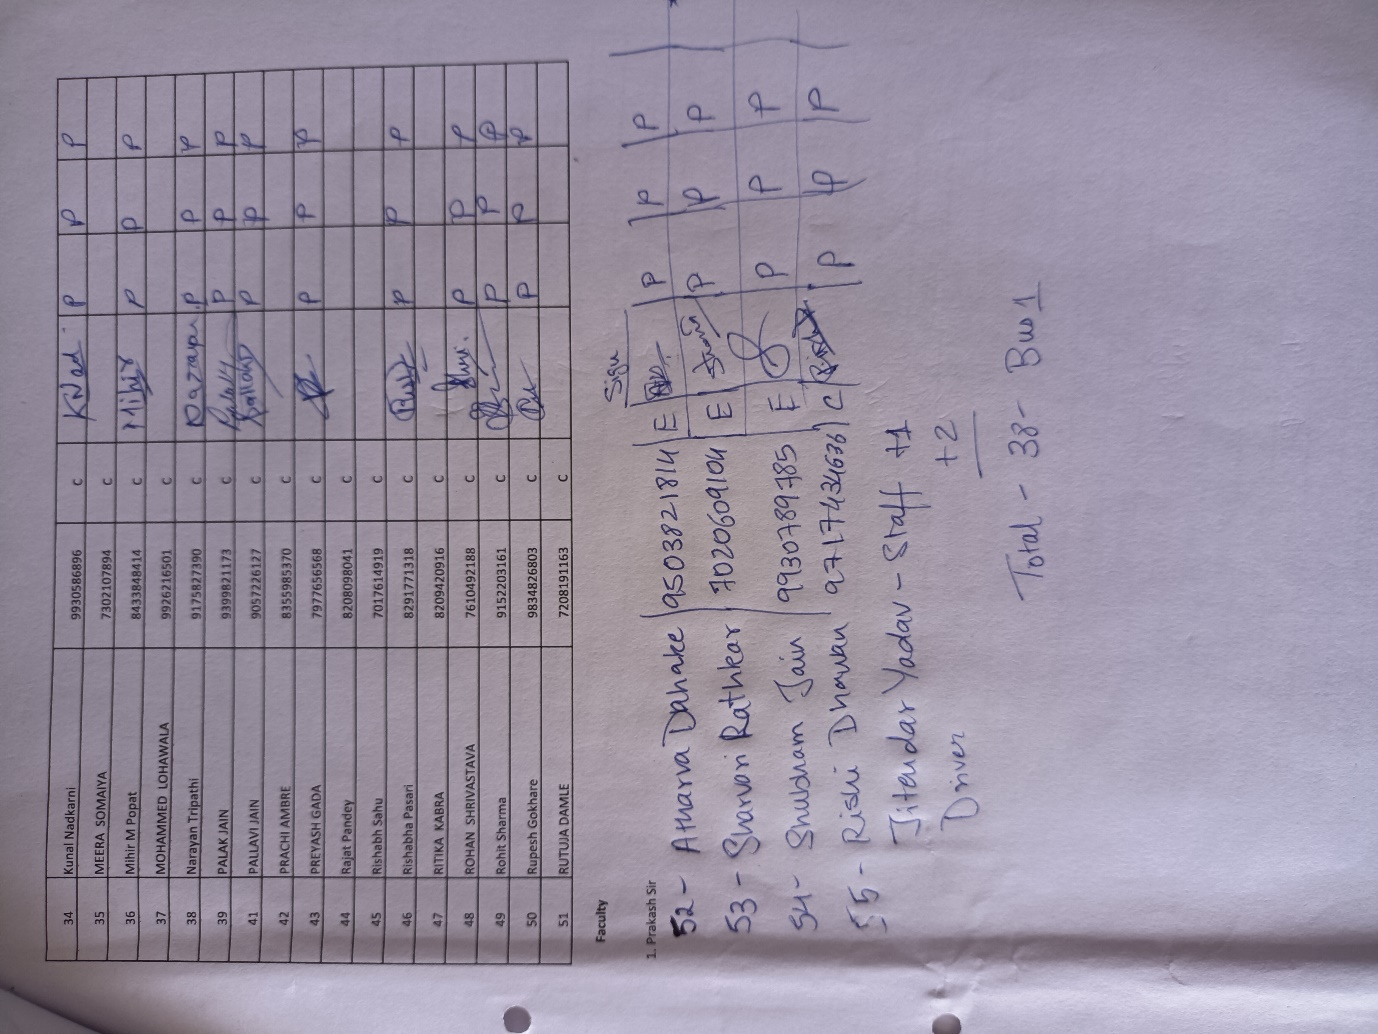 34 Kunal Nadkarni 9930586896 C KNad P P P
35 MEERA SOMAIYA 7302107894 C
36 Mihir M Popat 8433848414 C Mihir P P P
37 MOHAMMED LOHAWALA 9926216501 C
38 Narayan Tripathi 9175827390 C Narayan P P P
39 PALAK JAIN 9399821173 C P P P
41 PALLAVI JAIN 9057226127 C Pallavi P P P
42 PRACHI AMBRE 8355985370 C
43 PREYASH GADA 7977656568 C P P P
44 Rajat Pandey 8208098041 C
45 Rishabh Sahu 7017614919 C
46 Rishabha Pasari 8291771318 C P P P
47 RITIKA KABRA 8209420916 C
48 ROHAN SHRIVASTAVA 7610492188 C P P P
49 Rohit Sharma 9152203161 C P P P
50 Rupesh Gokhare 9834826803 C P P P
51 RUTUJA DAMLE 7208191163 C
Faculty
Sign
1. Prakash Sir
52 - Atharva Dahake 9503821814 E P P P
53 - Sharvari Rathkar 7020609104 E P P P
54 - Shubham Jain 9930789785 E P P P
55 - Rishi Dhawan 9717434636 C P P P
Jitendar Yadav - Staff +1
Driver +2
Total - 38 - Bus 1